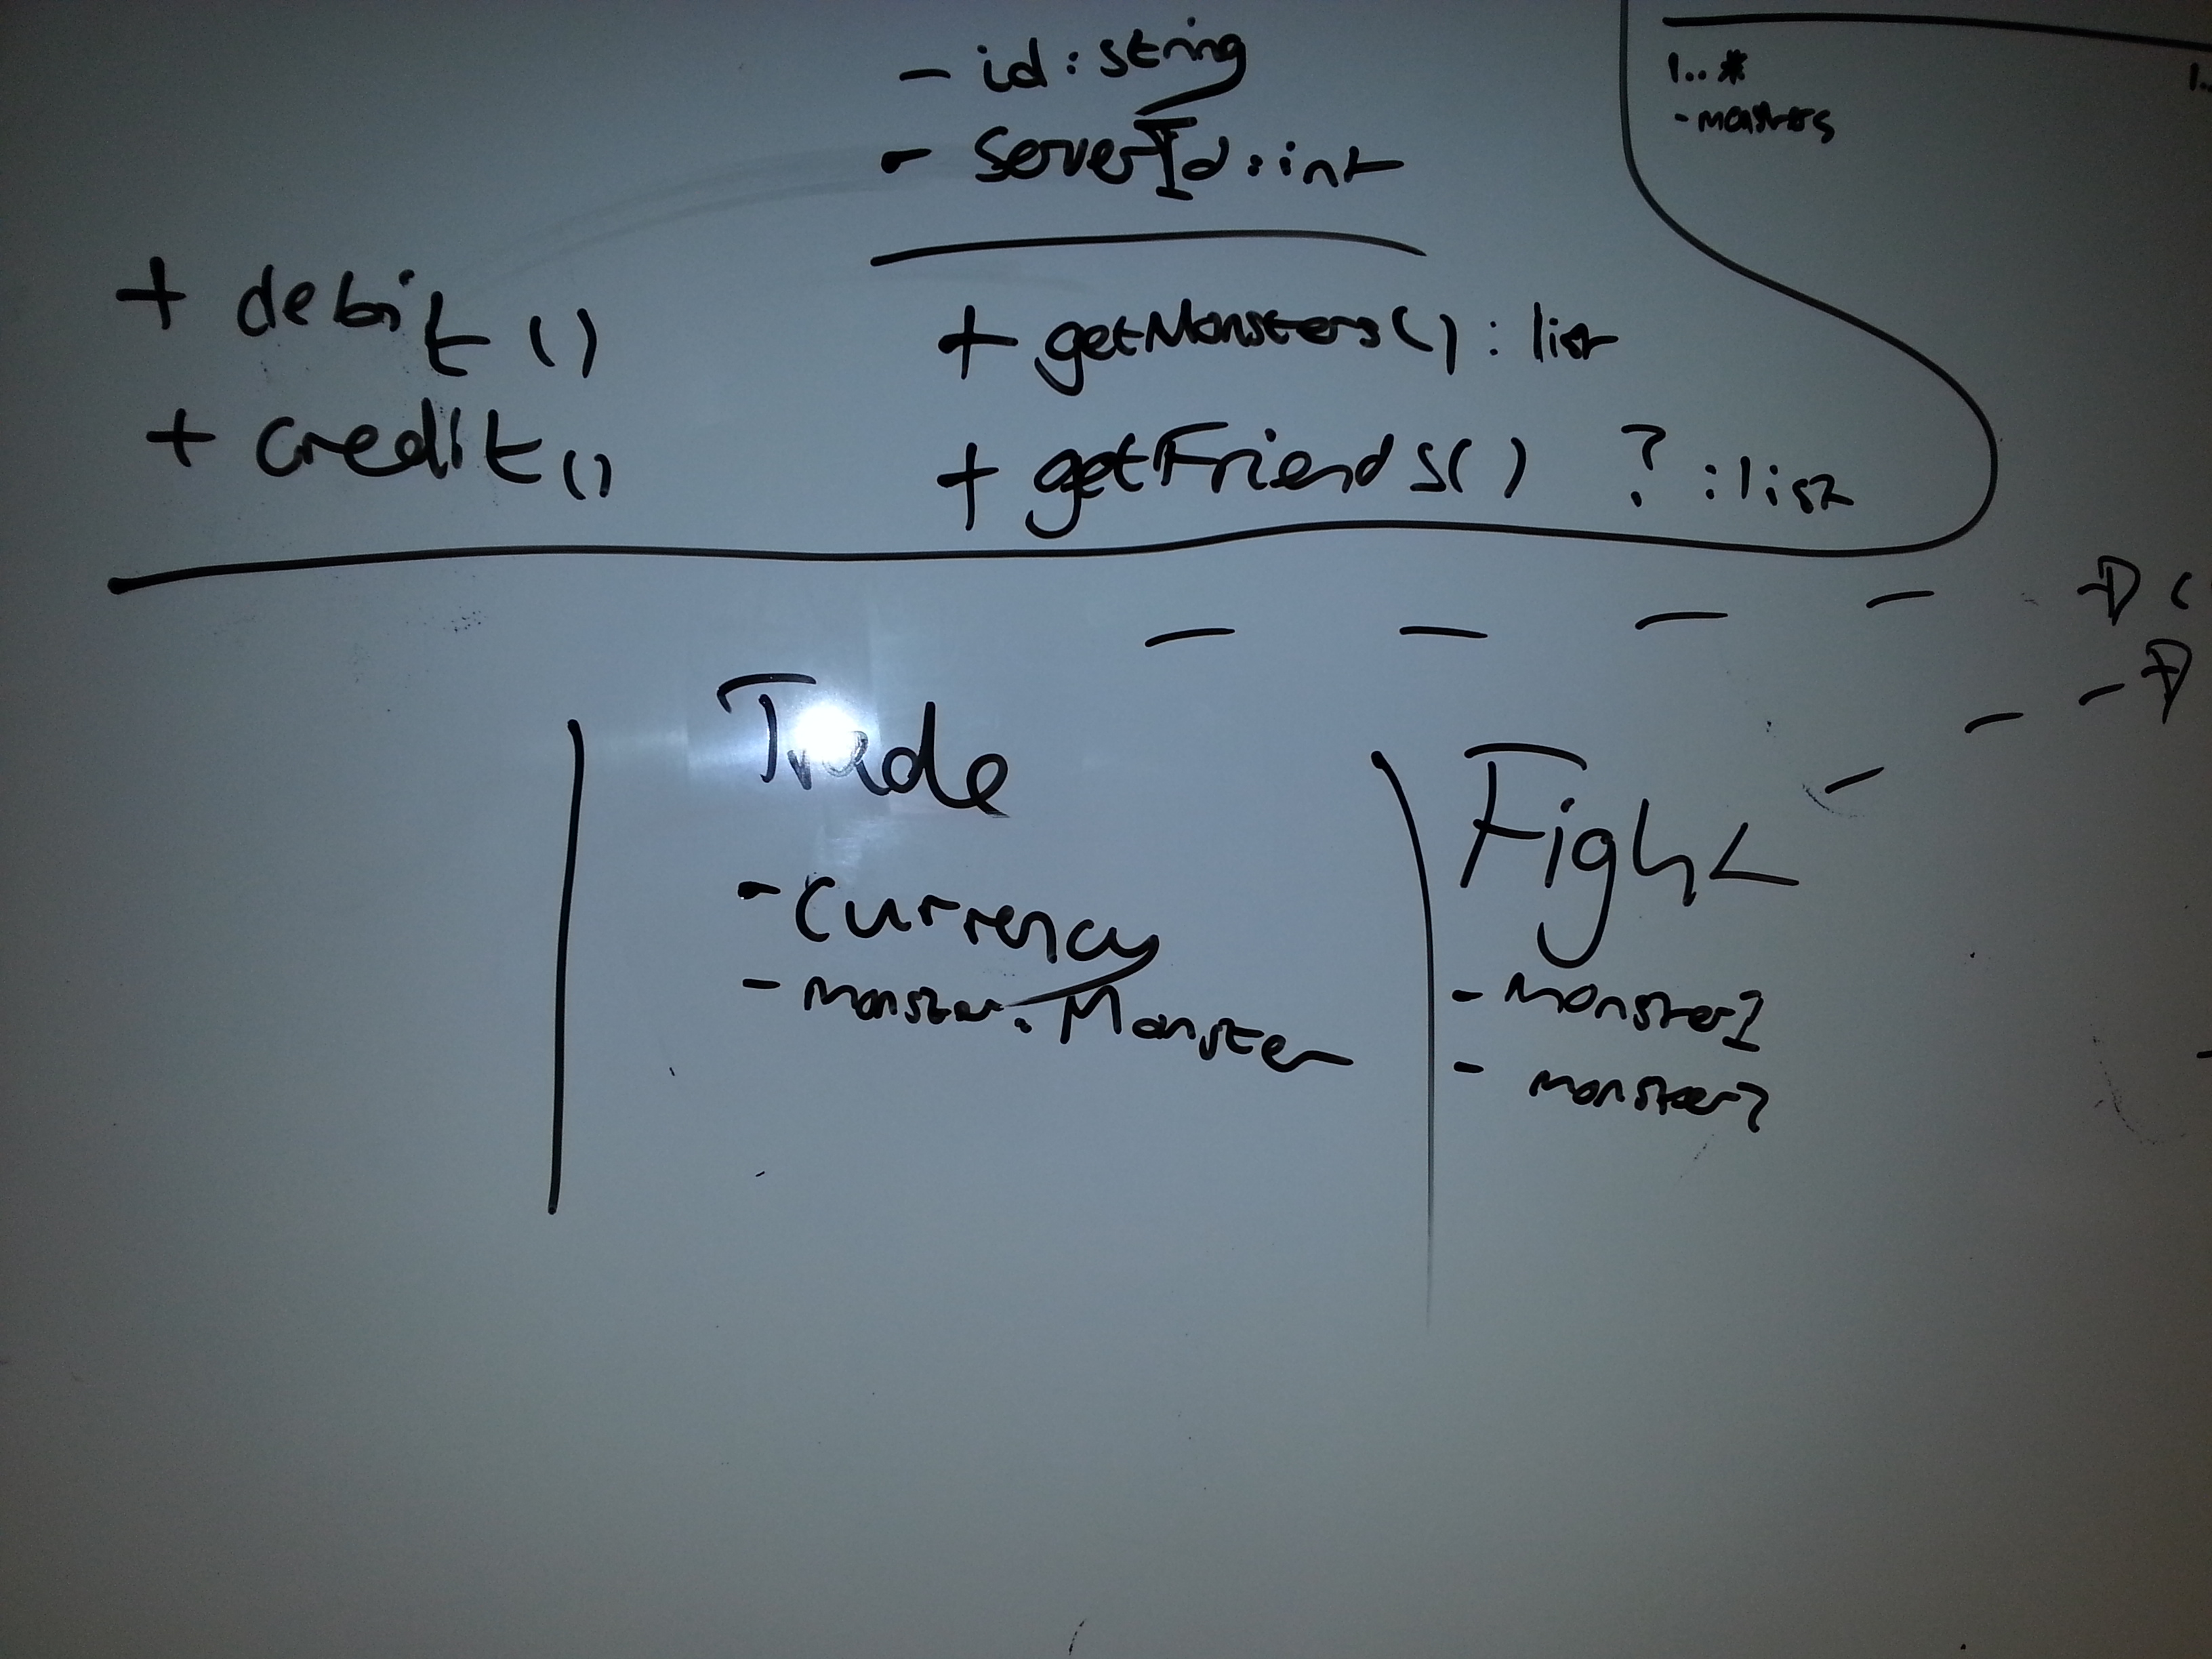 - id : string
- serverId : int
1..*
- monsters
+ debit ()
+ credit ()
+ getMonsters() : list
+ getFriends() ? : list
Trade
- currency
- monster : Monster
Fight
- monster1
- monster2